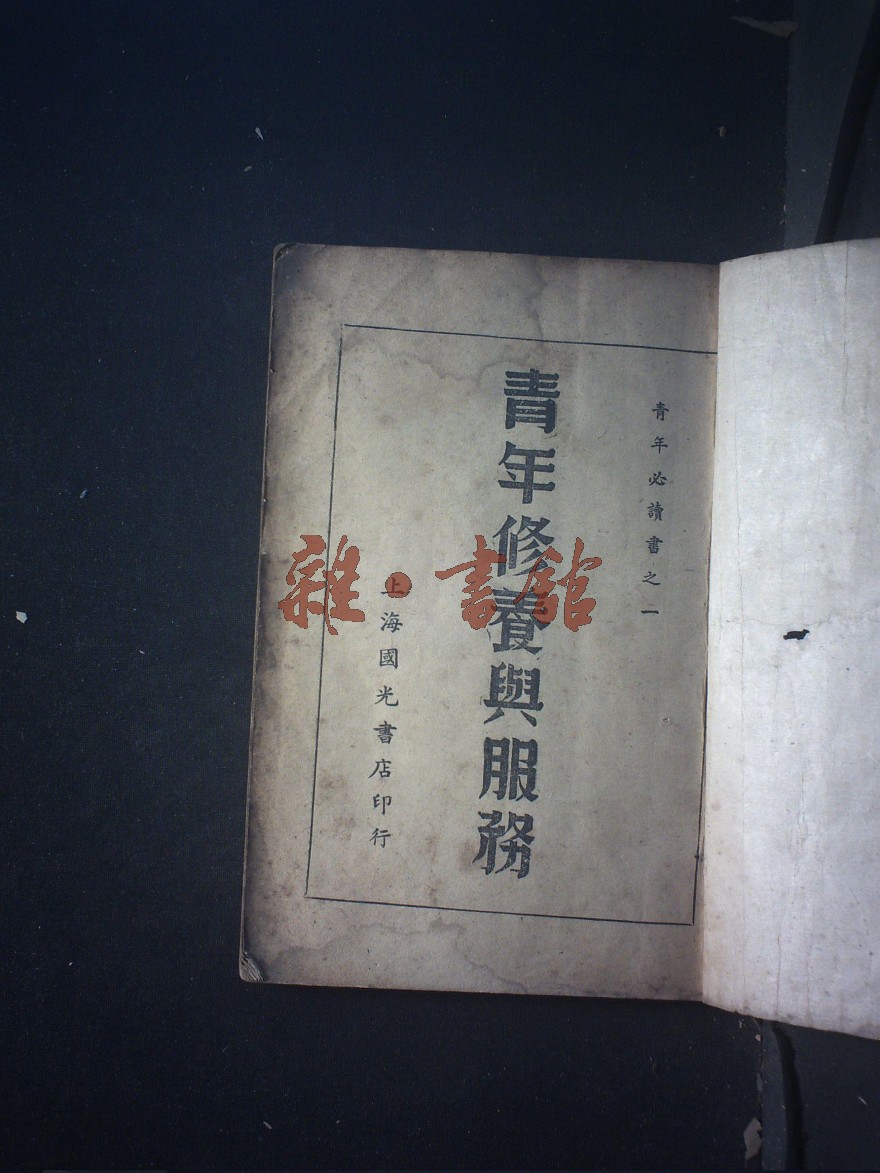 青年必讀書之一
青年修養與服務
上海國光書店印行
雜·書館